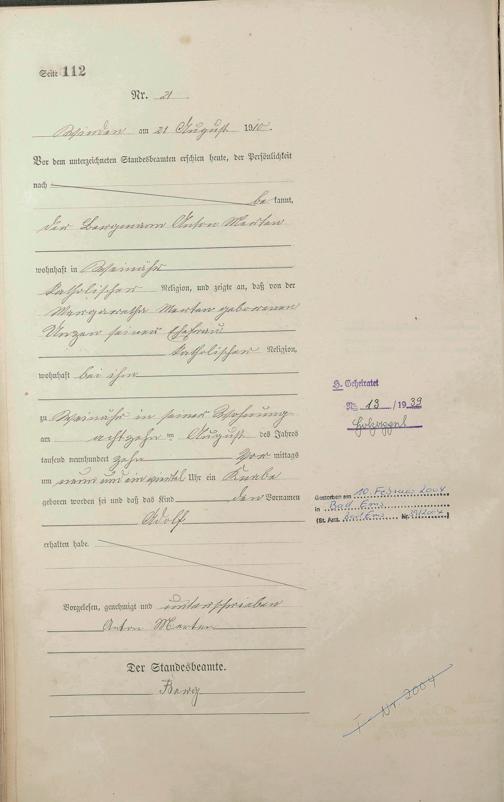 Seite 112
Nr. 21
Winden am 21 August 1910.
Vor dem unterzeichneten Standesbeamten erschien heute, der Persönlichkeit
nach
be kannt,
der Bergmann Anton Merten
wohnhaft in Weinähr
katholischer Religion, und zeigte an, daß von der
Margaretha Merten geborenen
seiner Ehefrau
katholischer Religion,
wohnhaft bei ihm
zu Weinähr in seiner Wohnung
am achtzehn ten August des Jahres
tausend neunhundert zehn Vor mittags
um neun und ein viertel Uhr ein Knabe
geboren worden sei und daß das Kind den Vornamen
Adolf
erhalten habe.
Vorgelesen, genehmigt und unterschrieben
Anton Merten
Der Standesbeamte.
H. Geheiratet
Nr. 13 / 1939
Holzappel
Gestorben am 10. Februar 2004
in Bad Ems
(St. Amt Bad Ems Nr. /2004)